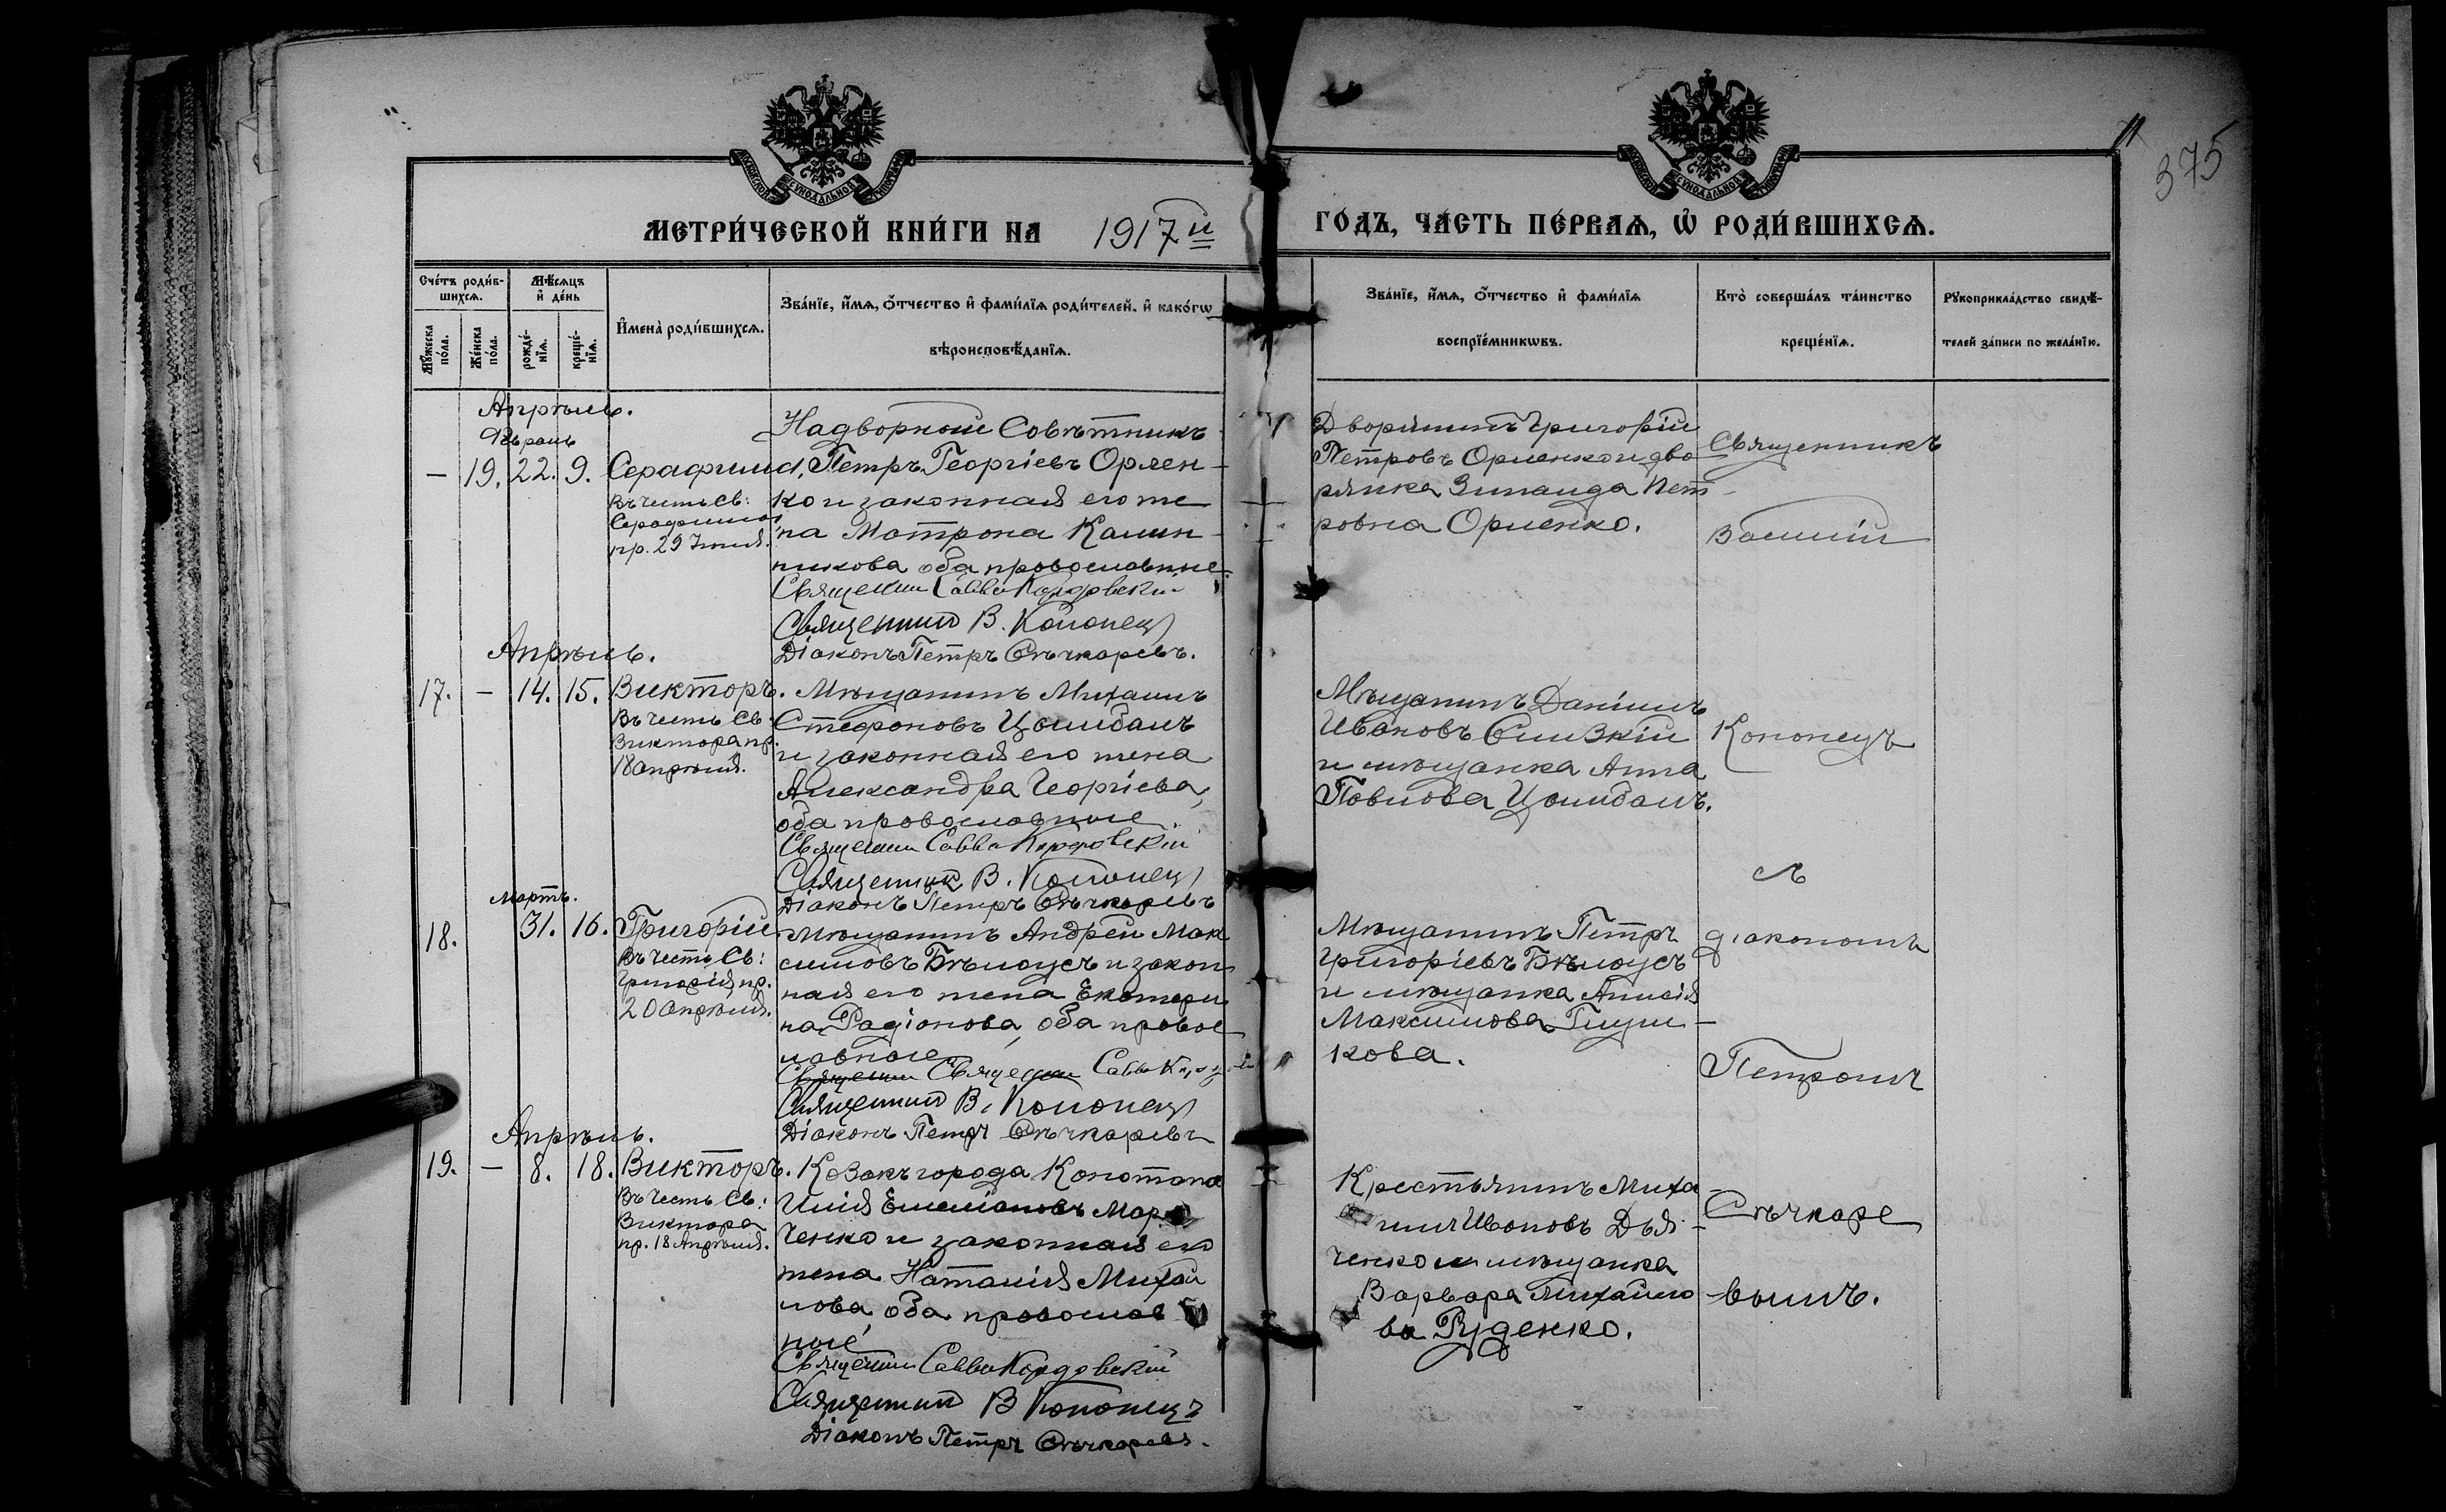 МОСКОВСКОЙ СѴНОДАЛЬНОЙ ТИПОГРАФІИ
МОСКОВСКОЙ СѴНОДАЛЬНОЙ ТИПОГРАФІИ
375
МЕТРИ́ЧЕСКОЙ КНИ́ГИ НА 1917й ГО́ДЪ, ЧА́СТЬ ПЕ́РВАѦ, Ѽ РОДИ́ВШИХСѦ.
Сче́тъ роди́в-
шихсѧ.
Мꙋжеска по́ла.
Же́нска по́ла.
Мѣ́сѧцъ
и҆ де́нь
рожде́-нїѧ.
креще́-нїѧ.
И҆мена̀ роди́вшихсѧ.
Зва́нїе, и҆́мѧ, ѻ҆́тчество и҆ фами́лїѧ роди́телей, и҆ како́гѡ
вѣроисповѣ́данїѧ.
Зва́нїе, и҆́мѧ, ѻ҆́тчество и҆ фами́лїѧ
воспрїе́мникѡвъ.
Кто̀ соверша́лъ та́инство
креще́нїѧ.
Рꙋкоприкла́дство свидѣ́-
телей за́писи по жела́нїю.
Апрѣль.
— 19. 22. 9. Серафима,
въ честь Св:
Серафимы
пр. 29 Іюля.
Надворный Совѣтникъ
Петръ Георгіевъ Орлен-
ко и законная его же
на Матрона Калин-
никова оба православные.
Священник Савва
Священник В. Кононец
Діаконъ Петръ Сѣчкаревъ.
Дворянинъ Григорій
Петровъ Орленко и дво
рянка Зинаида Пет-
ровна Орленко.
Священникъ
Василій
Апрѣль.
17. — 14. 15. Викторъ.
Въ честь Св:
Виктора пр.
18 Апрѣля.
Мѣщанинъ Михаилъ
Стефановъ Цымбалъ
и законная его жена
Александра Георгіева,
оба православные.
Священник Савва
Священник В. Кононец
Діаконъ Петръ Сѣчкаревъ
Мѣщанинъ Даніилъ
Ивановъ Слизкій
и мѣщанка Анна
Павлова Цымбалъ.
Кононецъ
съ
Мартъ.
18. 31. 16. Григорій.
Въ честь Св:
Григорія пр.
20 Апрѣля.
Мѣщанинъ Андрей Мак
симовъ Бѣлоусъ и закон
ная его жена Екатери
на Радіонова, оба правос
лавные.
Священник Савва
Священник В. Кононец
Діаконъ Петръ Сѣчкаревъ
Мѣщанинъ Петръ
Григоріевъ Бѣлоусъ
и мѣщанка Анисія
Максимова Глуш-
кова.
діакономъ
Петромъ
Апрѣль.
19. — 8. 18. Викторъ.
Въ честь Св:
Виктора
пр. 18 Апрѣля.
Козакъ города Конотопа
Илія Емеліановъ Мар
ченко и законная его
жена Наталія Михай
лова, оба православ
ные
Священник Савва
Священник В Кононецъ
Діаконъ Петръ Сѣчкаревъ.
Крестьянинъ Миха-
илъ Ивановъ Дья-
ченко и мѣщанка
Варвара Михайло
ва Руденко.
Сѣчкаре
-вымъ.